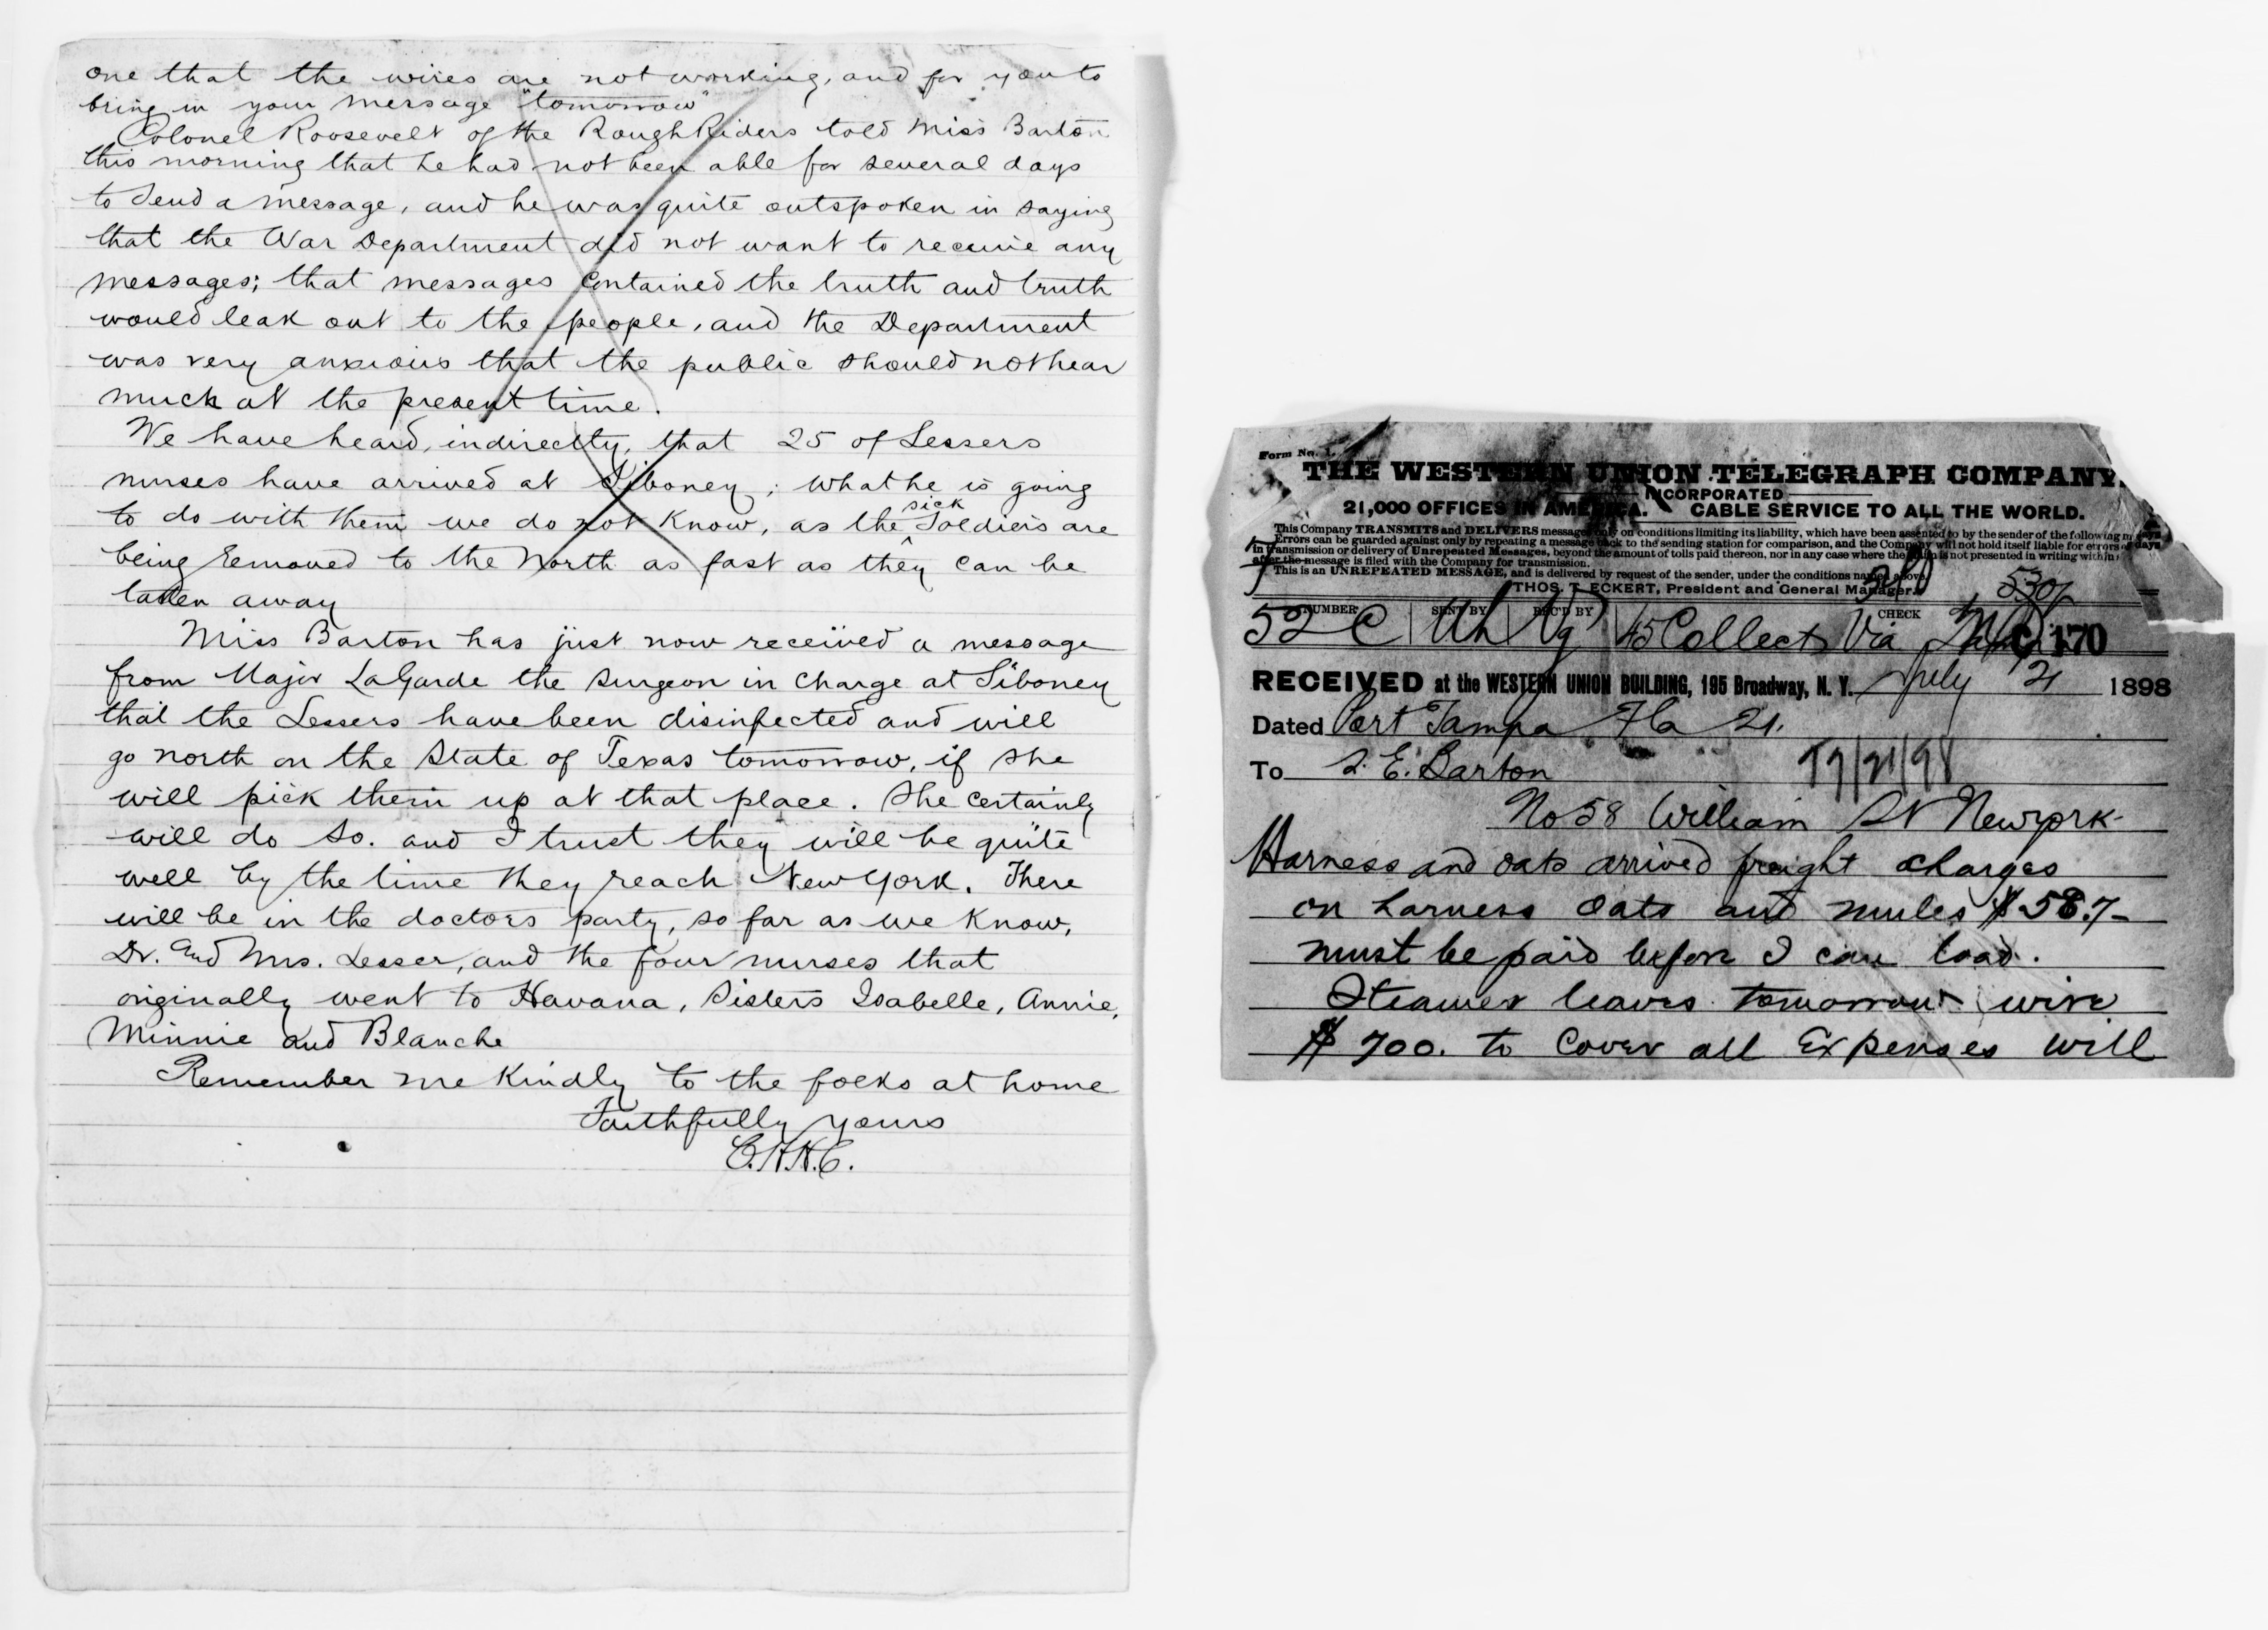 one that the wires are not working, and for you to
bring in your message "tomorrow"
Colonel Roosevelt of the Rough Riders told Miss Barton
this morning that he had not been able for several days
to send a message, and he was quite outspoken in saying
that the War Department did not want to receive any
messages; that messages contained the truth and truth
would leak out to the people, and the Department
was very anxious that the public should not hear
much at the present time.
We have heard, indirectly, that 25 of Lessers
nurses have arrived at Siboney; what he is going
sick
to do with them we do not know, as the ^ soldiers are
being removed to the North as fast as they can be
taken away
Miss Barton has just now received a message
from Major LaGarde the surgeon in charge at Siboney
that the Lessers have been disinfected and will
go north on the State of Texas tomorrow, if she
will pick them up at that place. She certainly
will do so. and I trust they will be quite
well by the time they reach New York. There
will be in the doctors party, so far as we know,
Dr. and Mrs. Lesser, and the four nurses that
originally went to Havana, Sisters Isabelle, Annie,
Minnie and Blanche
Remember me kindly to the folks at home
Faithfully yours
C.H.H.C.
Form No. 1.
THE WESTERN UNION TELEGRAPH COMPANY.
INCORPORATED
21,000 OFFICES IN AMERICA. CABLE SERVICE TO ALL THE WORLD.
This Company TRANSMITS and DELIVERS messages only on conditions limiting its liability, which have been assented to by the sender of the following
Errors can be guarded against only by repeating a message back to the sending station for comparison, and the Company will not hold itself liable for errors or
in transmission or delivery of Unrepeated Messages, beyond the amount of tolls paid thereon, nor in any case where the claim is not presented in writing within
after the message is filed with the Company for transmission.
This is an UNREPEATED MESSAGE, and is delivered by request of the sender, under the conditions named above.
THOS. T. ECKERT, President and General Manager.
530
NUMBER SENT BY REC'D BY CHECK
52 C 45 Collect Via
C 170
RECEIVED at the WESTERN UNION BUILDING, 195 Broadway, N. Y. July 21 1898
Dated Port Tampa Fla 21.
To S. E. Barton
7/21/98
No 58 William St Newyork
Harness and oats arrived freight charges
on harness oats and mules $587-
must be paid before I can load.
Steamer leaves tomorrow wire
$700. to cover all Expenses will